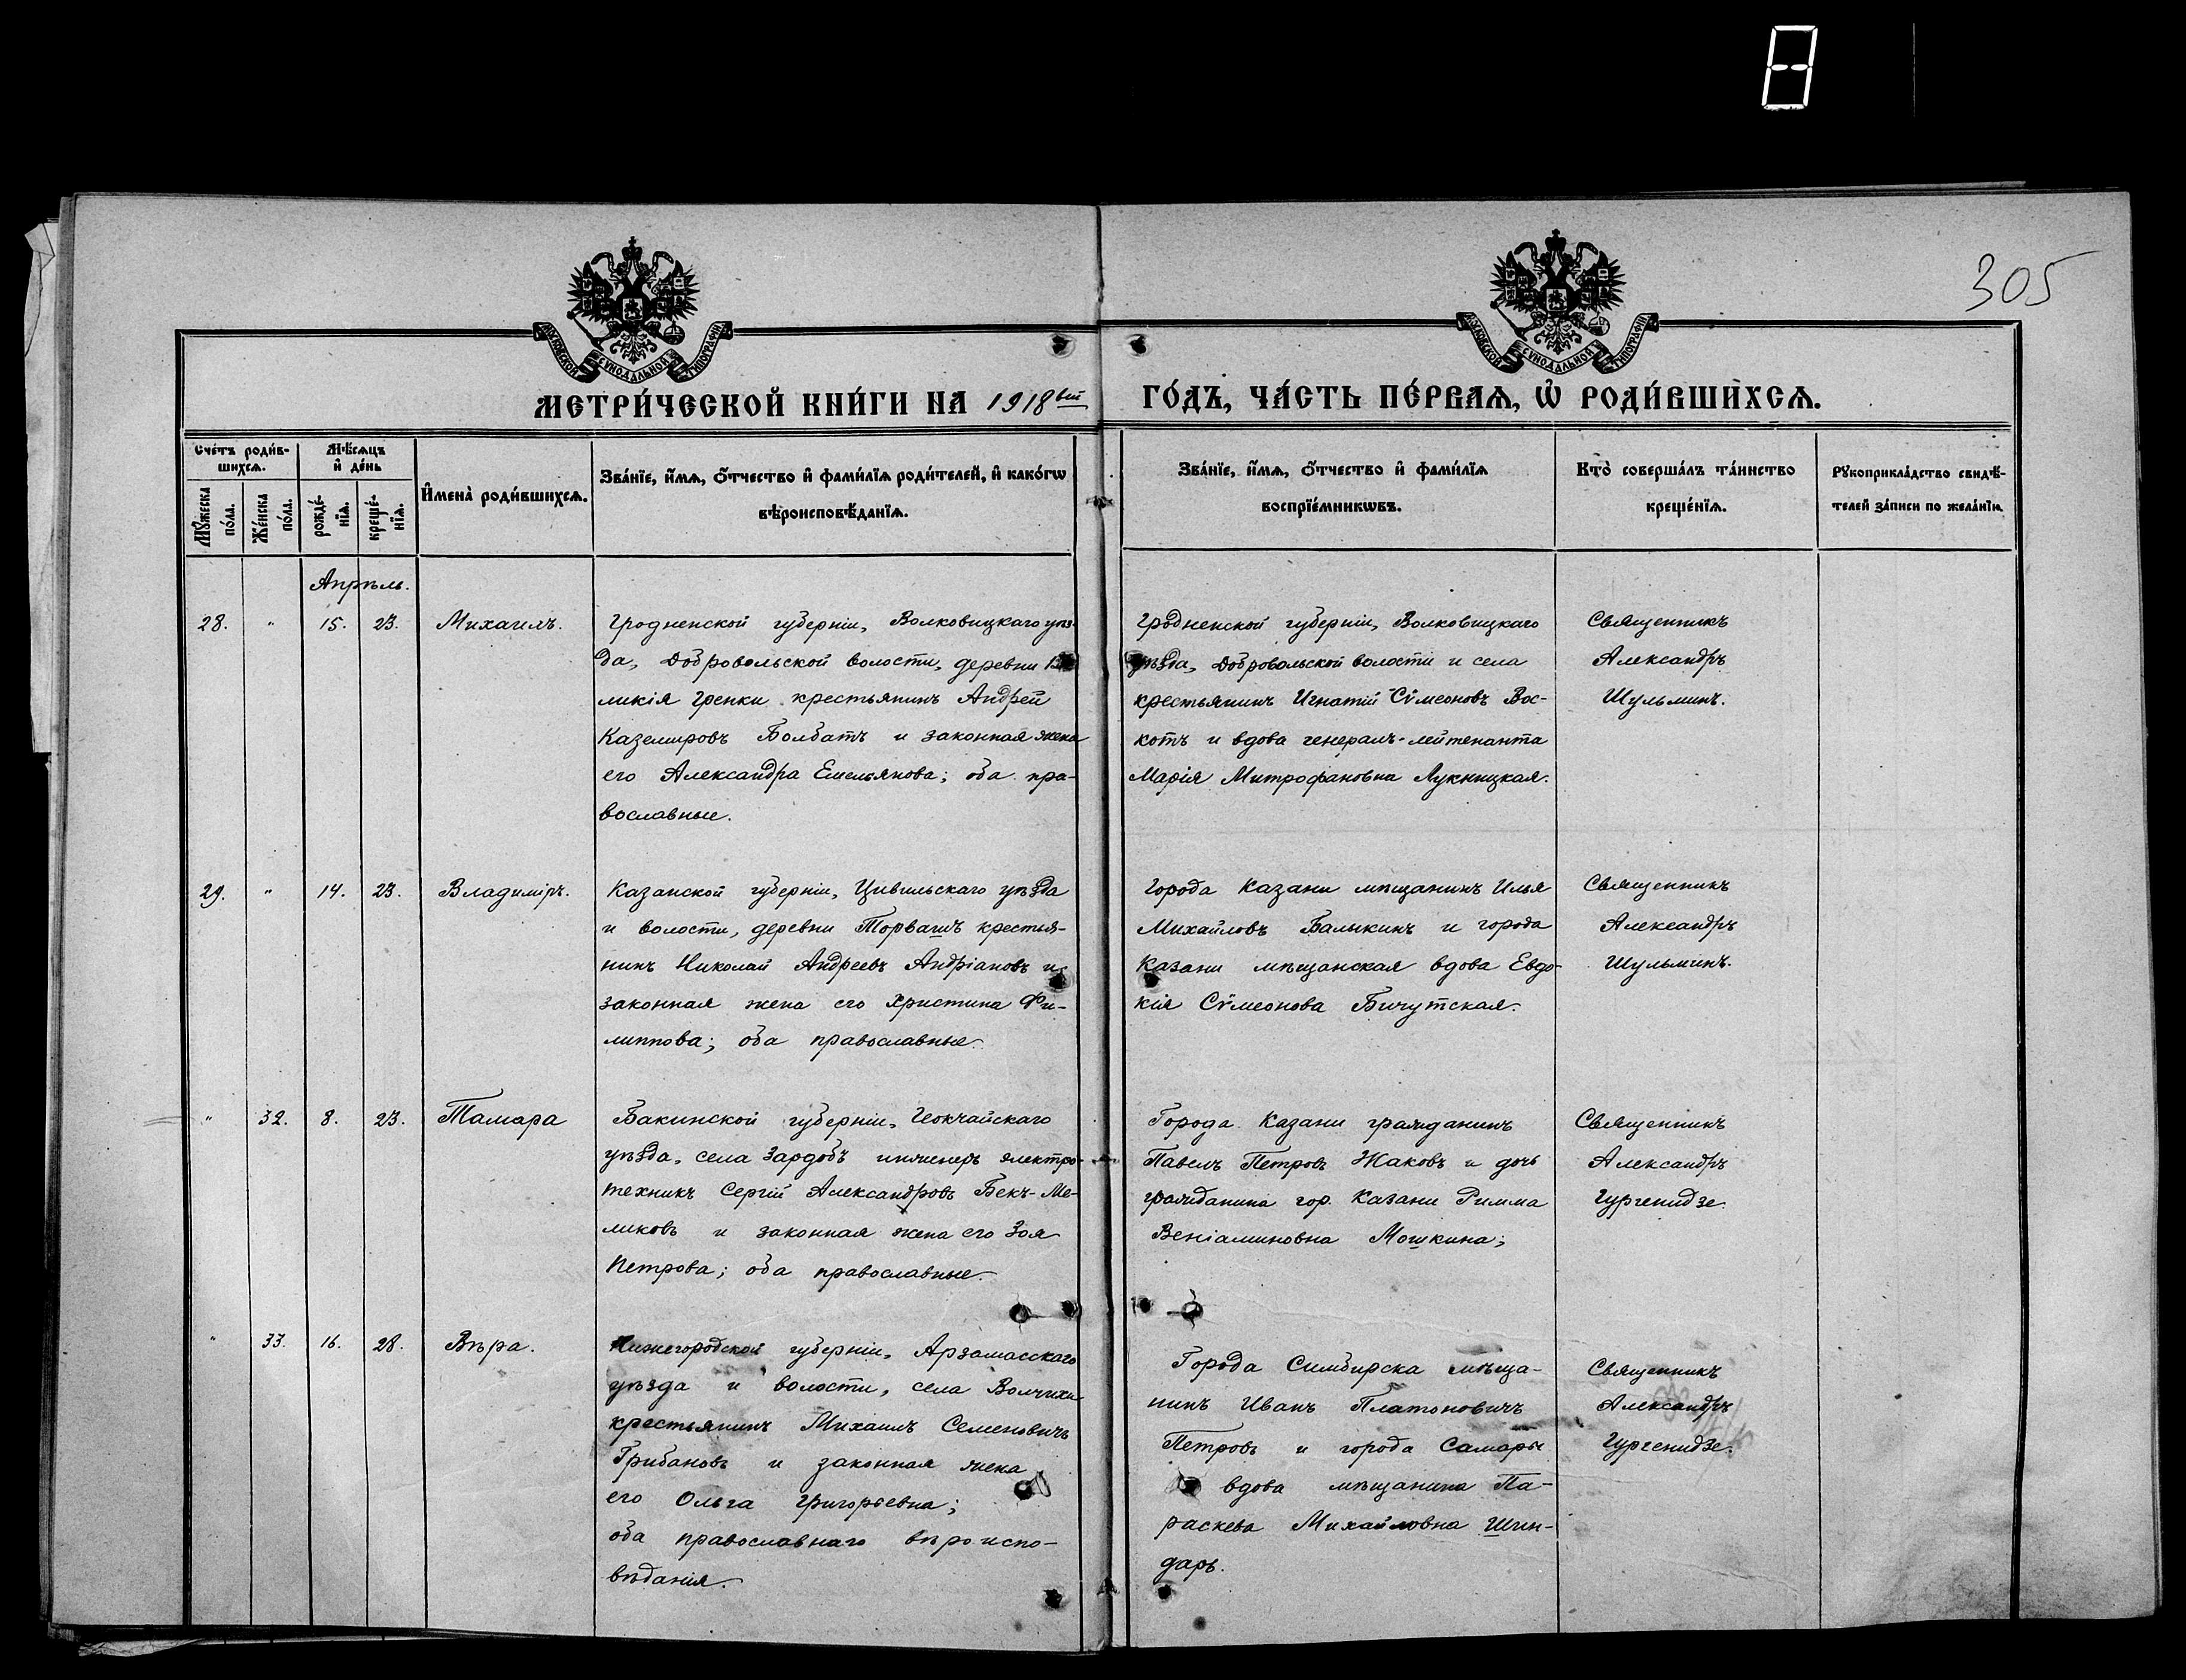 305
МОСКОВСКОЙ СѴНОДАЛЬНОЙ ТИПОГРАФІИ
МОСКОВСКОЙ СѴНОДАЛЬНОЙ ТИПОГРАФІИ
МЕТРИ́ЧЕСКОЙ КНИ́ГИ НА 1918 вый ГО́ДЪ, ЧА́СТЬ ПЕ́РВАЯ, Ѡ҆ РОДИ́ВШИХСЯ.
Сче́тъ роди́в-
шихся.
Мꙋ́жеска по́ла.
Же́нска по́ла.
Мѣ́сяцъ
и҆ де́нь
рожде́-
нїя.
креще́-
нїя.
И҆мена̀ роди́вшихся.
Зва́нїе, и҆́мя, о҆́тчество и҆ фами́лїя роди́телей, и҆ како́гѡ
вѣроисповѣ́данїя.
Зва́нїе, и҆́мя, о҆́тчество и҆ фами́лїя
воспрїе́мникѡвъ.
Кто̀ соверша́лъ та́инство
креще́нїя.
Рꙋкоприкла́дство свидѣ́-
телей за́писи по жела́нїю.
Апрѣль.
28. " 15. 23. Михаилъ.
Гродненской губерніи, Волковицкаго уѣз-
да, Добровольской волости, деревни
ликія Гренки крестьянинъ Андрей
Каземировъ Болбатъ и законная жена
его Александра Емельянова; оба пра-
вославные.
Гродненской губерніи, Волковицкаго
уѣзда, Добровольской волости и села
крестьянинъ Игнатій Сѵмеоновъ Вос-
котъ и вдова генералъ-лейтенанта
Марія Митрофановна Лукницкая.
Священникъ
Александръ
Шульминъ.
29. " 14. 23. Владиміръ.
Казанской губерніи, Цивильскаго уѣзда
и волости, деревни Торвашъ крестья-
нинъ Николай Андреевъ Андріановъ и
законная жена его Христина Фи-
липпова; оба православные.
Города Казани мѣщанинъ Илья
Михайловъ Балыкинъ и города
Казани мѣщанская вдова Евдо-
кія Сѵмеонова Бичутская.
Священникъ
Александръ
Шульминъ.
" 32. 8. 23. Тамара
Бакинской губерніи, Геокчайскаго
уѣзда, села Зардобъ инженеръ электро-
техникъ Сергій Александровъ Бекъ-Ме-
ликовъ и законная жена его Зоя
Петрова; оба православные.
Города Казани гражданинъ
Павелъ Петровъ Жаковъ и дочь
гражданина гор. Казани Римма
Веніаминовна Мошкина;
Священникъ
Александръ
Гургенидзе.
" 33. 16. 28. Вѣра.
Нижегородской губерніи, Арзамасскаго
уѣзда и волости, села Волчихи
крестьянинъ Михаилъ Семеновичъ
Грибановъ и законная жена
его Ольга Григорьевна;
оба православнаго вѣроиспо-
вѣданія.
Города Симбирска мѣща-
нинъ Иванъ Платоновичъ
Петровъ и города Самары
вдова мѣщанина Па-
раскева Михайловна Шин-
дарь.
Священникъ
Александръ
Гургенидзе.